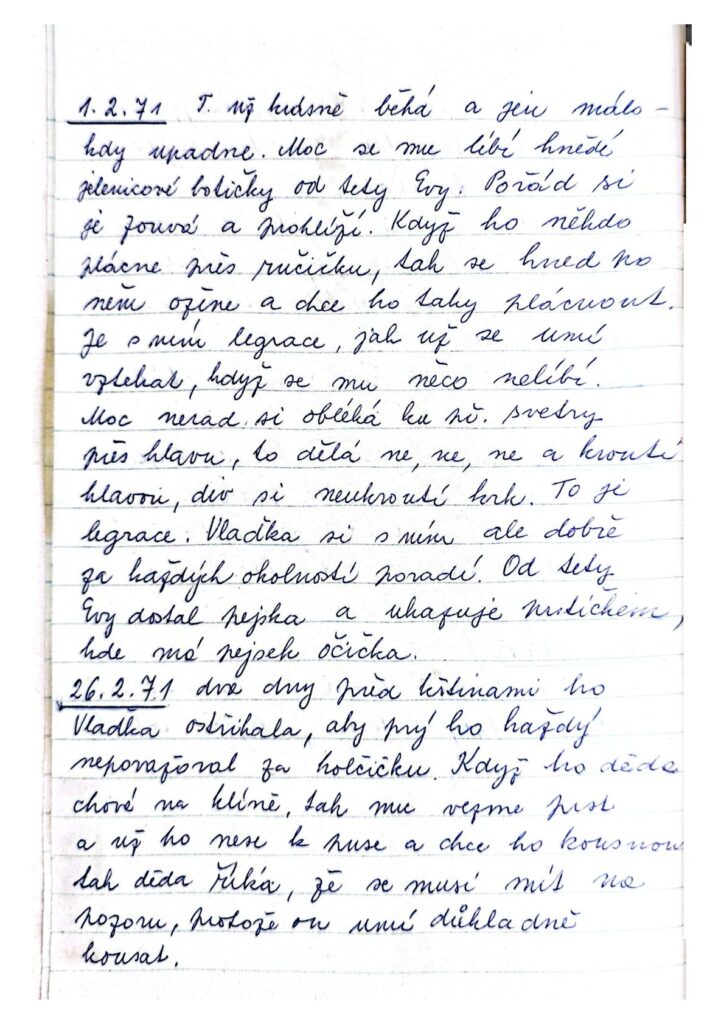 1.2.71 T. už krásně běhá a jen málo-
kdy upadne. Moc se mu líbí hnědé
jelenicové botičky od tety Evy. Pořád si
je zouvá a prohlíží. Když ho někdo
plácne přes ručičku, tak se hned po
něm ožene a chce ho taky plácnout.
Je s ním legrace, jak už se umí
vztekat, když se mu něco nelíbí.
Moc nerad si obléká ku př. svetry
přes hlavu, to dělá ne, ne, ne a kroutí
hlavou, div si neukroutí krk. To je
legrace. Vlaďka si s ním ale dobře
za každých okolností poradí. Od tety
Evy dostal pejska a ukazuje prstíčkem,
kde má pejsek očička.
26.2.71 dva dny před křtinami ho
Vlaďka ostříhala, aby prý ho každý
nepovažoval za holčičku. Když ho děda
chová na klíně, tak mu vezme prst
a už ho nese k puse a chce ho kousnou
tak děda říká, že se musí mít na
pozoru, protože on umí důkladně
kousat.